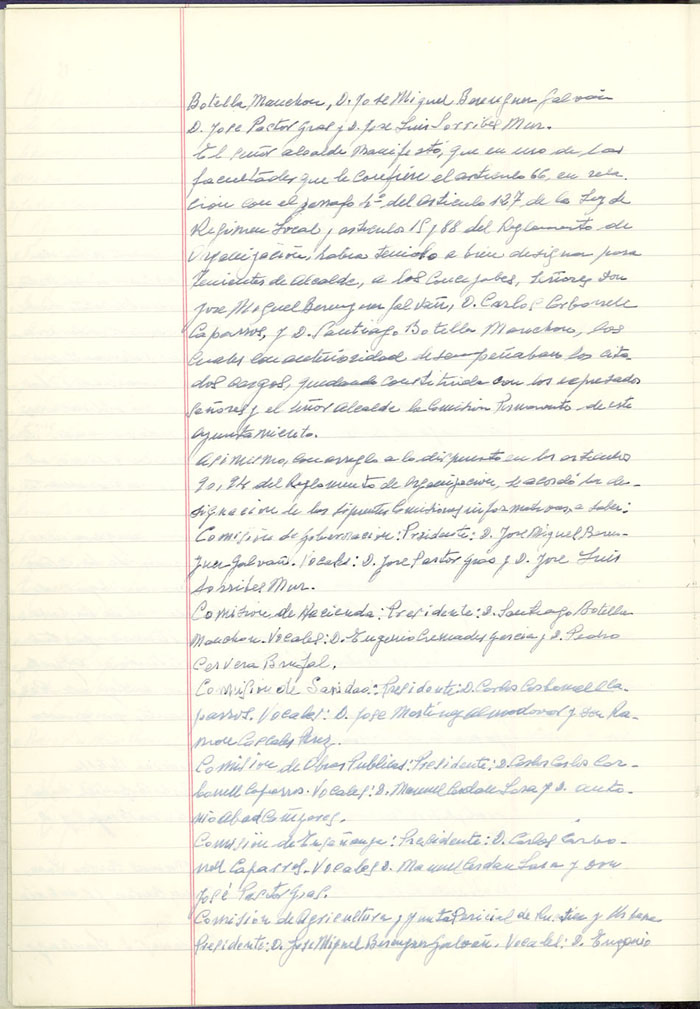 Botella Manchon, D. Jose Miguel Berenguer Galvañ
D. Jose Pastor Gras y D. Jose Luis Sorribes Mur.
El Señor alcalde manifesto, que en uso de las
facultades que le confiere el articulo 66, en rela-
ción con el parrafo 4º del articulo 127 de la Ley de
Regimen Local y articulo 15 y 88 del Reglamento de
Organización, habia tenido a bien designar para
Tenientes de Alcalde, a los Concejales, Señores Don
Jose Miguel Berenguer Galvañ, D. Carlos Carbonell
Caparros, y D. Santiago Botella Manchon, los
cuales con anterioridad desempeñaban los cita-
dos cargos, quedando constituida con los expresados
Señores y el Señor Alcalde la Comision Permanente de este
Ayuntamiento.
Asimismo, con arreglo a lo dispuesto en los articulos
90, 94 del Reglamento de Organizacion, se acordó la de-
signacion de las siguientes Comisiones informativas, a saber:
Comisión de Gobernacion: Presidente: D. Jose Miguel Beren-
guer Galvañ. Vocales: D. Jose Pastor Gras y D. Jose Luis
Sorribes Mur.
Comision de Hacienda: Presidente: D. Santiago Botella
Manchon. Vocales: D. Eugenio Cremades Garcia y D. Pedro
Cervera Brufal.
Comision de Sanidad: Presidente: D. Carlos Carbonell Ca-
parros. Vocales: D. Jose Martinez Almodovar y Don Ra-
mon Costales Perez.
Comision de Obras Publicas: Presidente: D. Carlos Carlos Car-
bonell Caparros. Vocales: D. Manuel Cerdan Susa y D. Anto-
nio Abad Cañizares.
Comisión de Enseñanza: Presidente: D. Carlos Carbo-
nell Caparros. Vocales D. Manuel Cerdan Susa y Don
José Pastor Gras.
Comisión de Agricultura y Junta Pericial de Rustica y Urbana
Presidente: D. Jose Miguel Berenguer Galvañ. Vocales: D. Eugenio